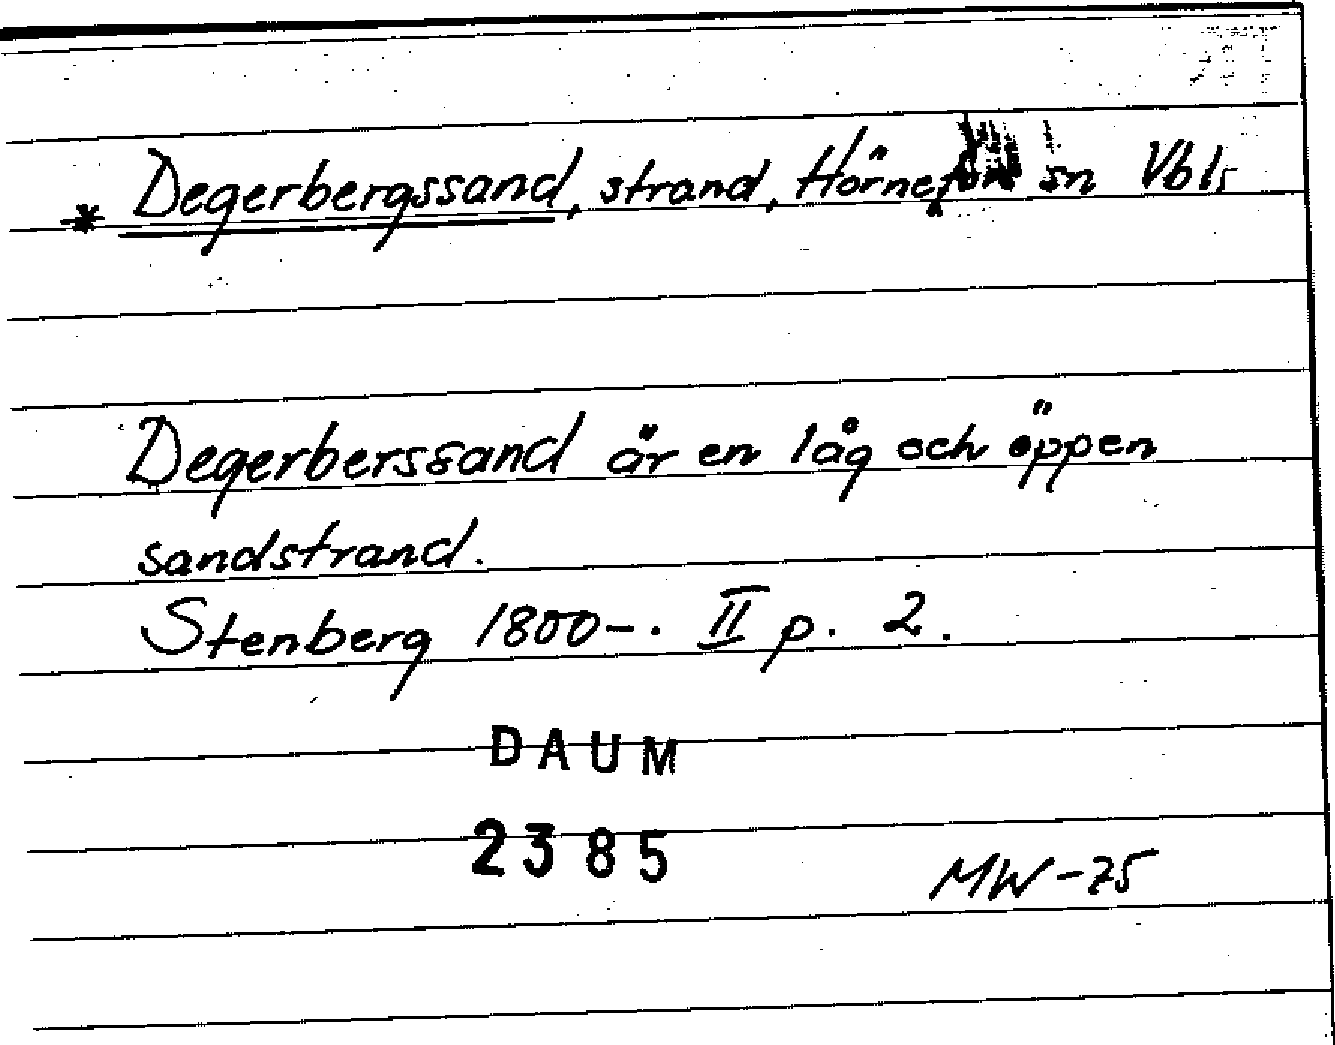 * Degerbergssand, strand, Hörnefors sn Vbl.
Degerberssand är en låg och öppen
sandstrand.
Stenberg 1800-. II p. 2.
DAUM
2385
MW-75